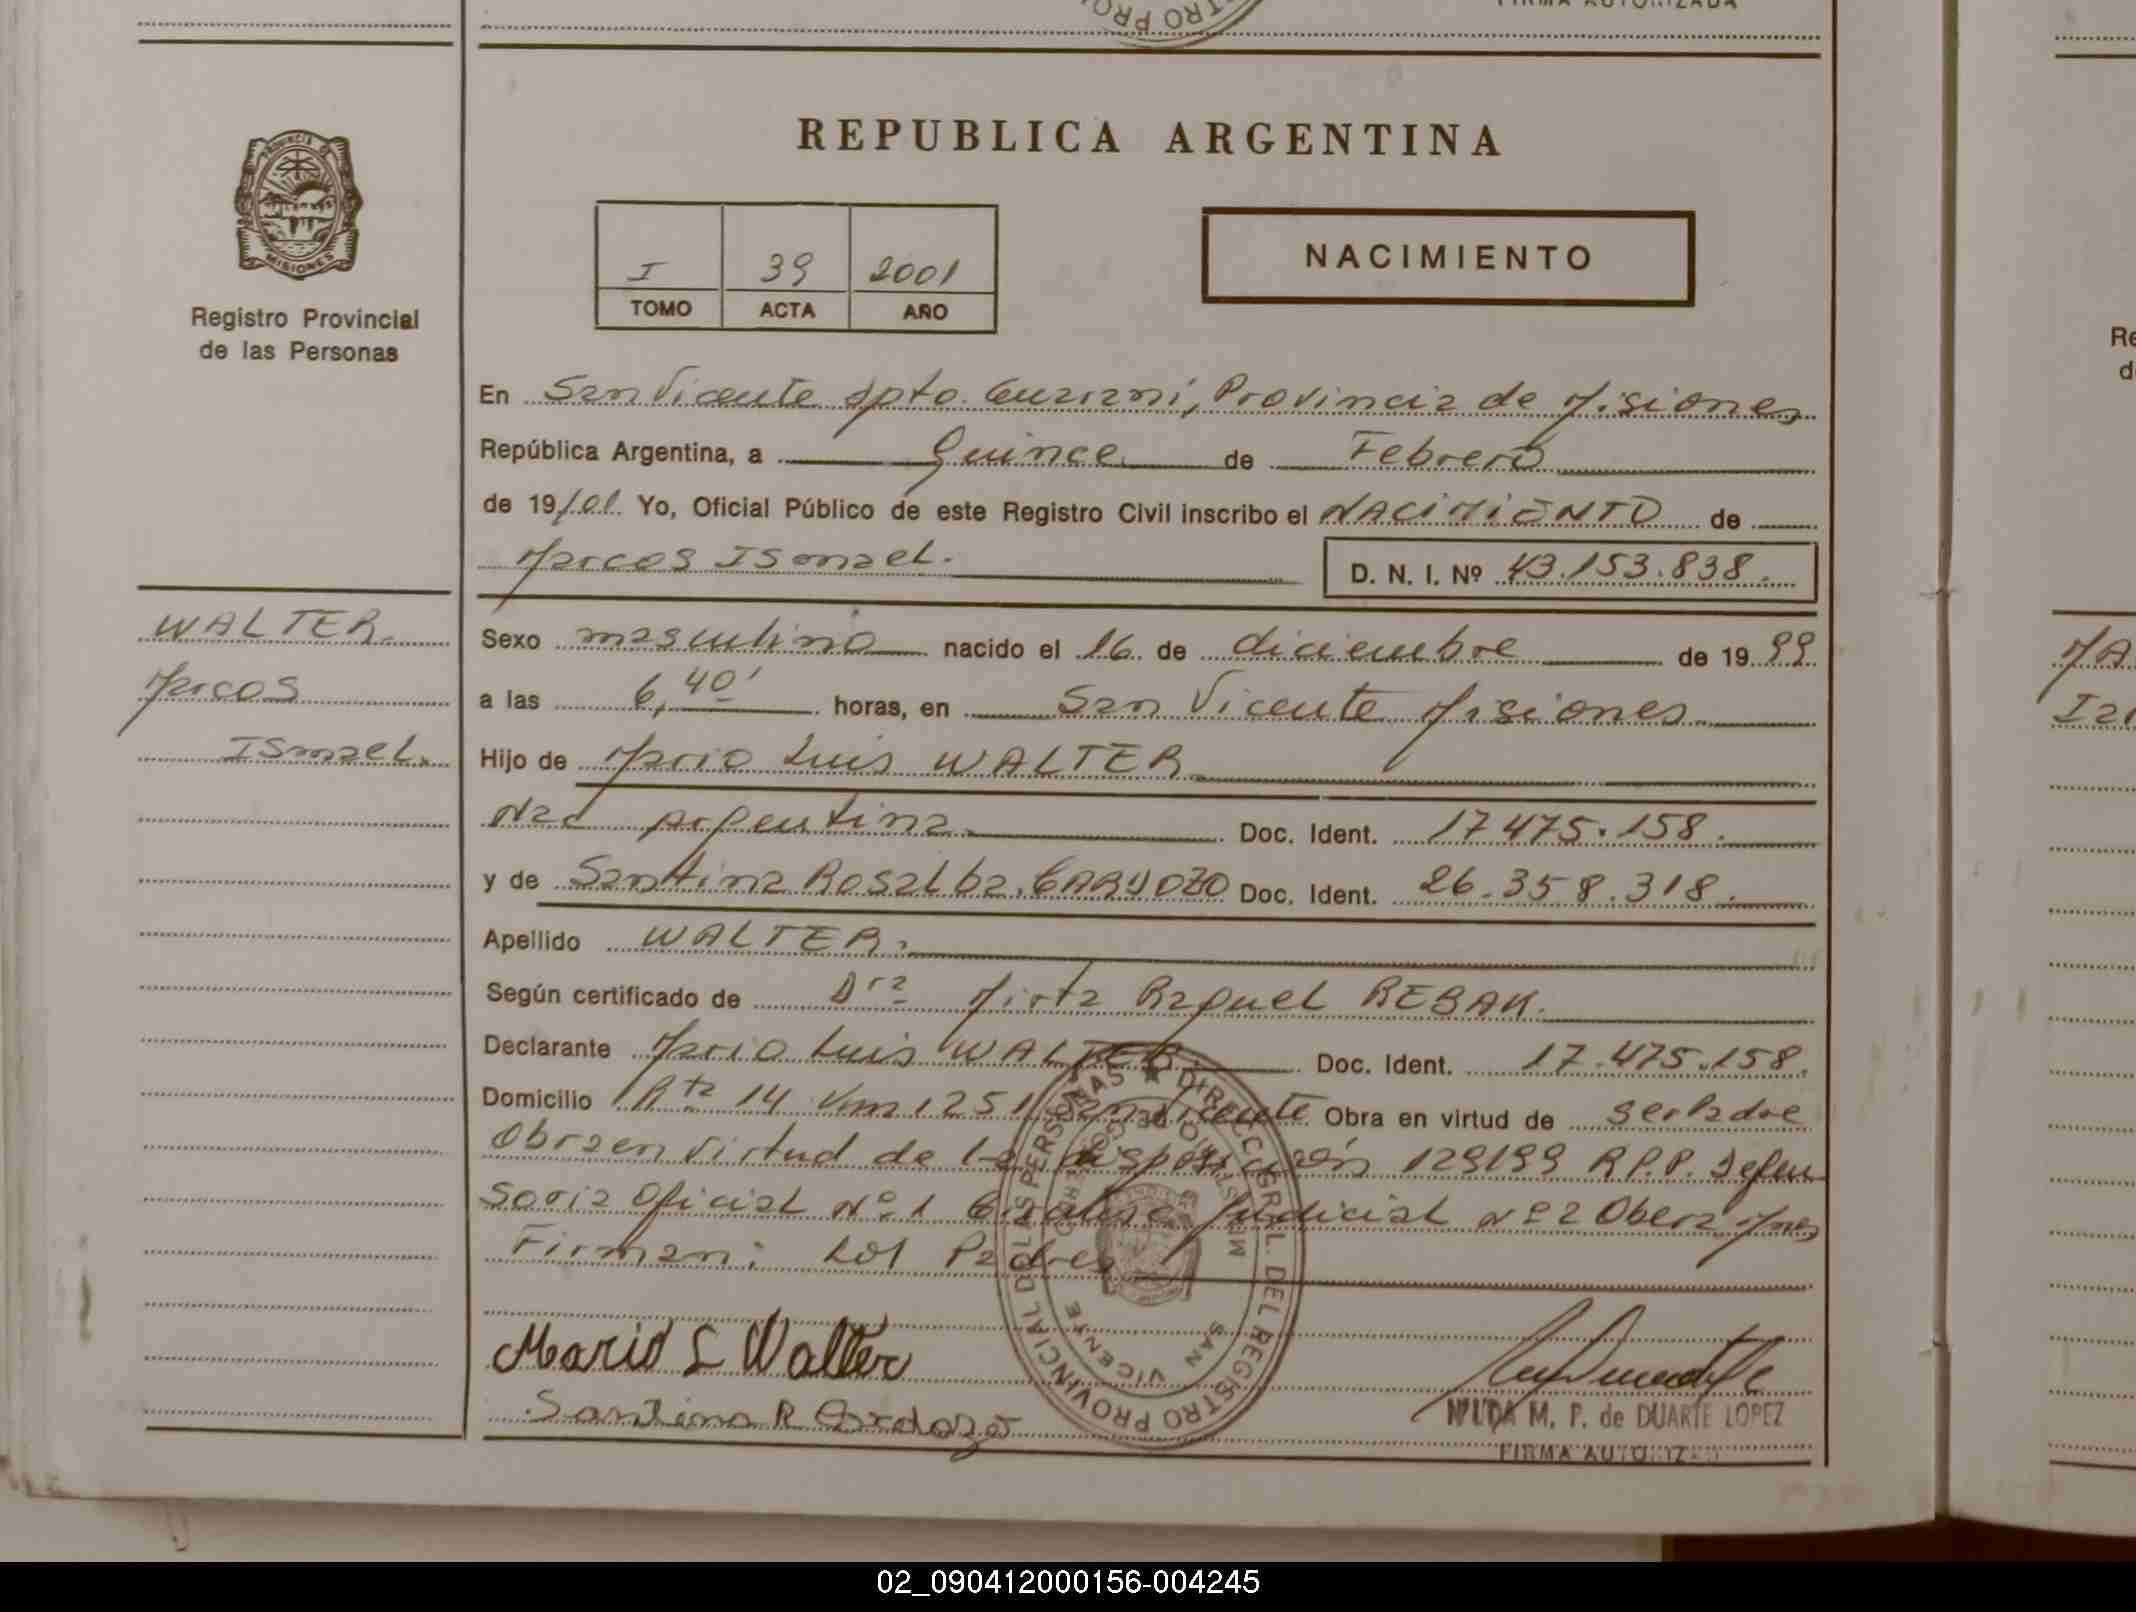 FIRMA AUTORIZADA
REPUBLICA ARGENTINA
I 39 2001
TOMO ACTA AÑO
NACIMIENTO
PROVINCIA DE
MISIONES
Registro Provincial
de las Personas
En San Vicente Dpto. Guarani, Provincia de Misiones
República Argentina, a Quince de Febrero
de 19/01. Yo, Oficial Público de este Registro Civil inscribo el NACIMIENTO de
Marcos Ismael. D. N. I. Nº 43.153.838.
WALTER
Marcos
Ismael.
Sexo masculino nacido el 16 de diciembre de 1999
a las 6,40' horas, en San Vicente Misiones
Hijo de Mario Luis WALTER
Nac Argentina Doc. Ident. 17475.158.
y de Santina Rosalba Doc. Ident. 26.358.318.
Apellido WALTER.
Según certificado de Dra Mirta Raquel REBAK.
Declarante Mario Luis WALTER Doc. Ident. 17.475.158.
Domicilio Rta 14 Km 1251 San Vicente Obra en virtud de
Obra en virtud de la Disposición 129199 R.P.P. Defen
soria Oficial Nº 1 Judicial Nº 2 Obera Mnes
Firman: Los Padres
Mario L Walter
Santina R Cardozo
REGISTRO PROVINCIAL DE LAS PERSONAS ★ DIRECCION GRAL. DEL
SAN VICENTE
M. P. de DUARTE LOPEZ
FIRMA AUTORIZADA
02_090412000156-004245